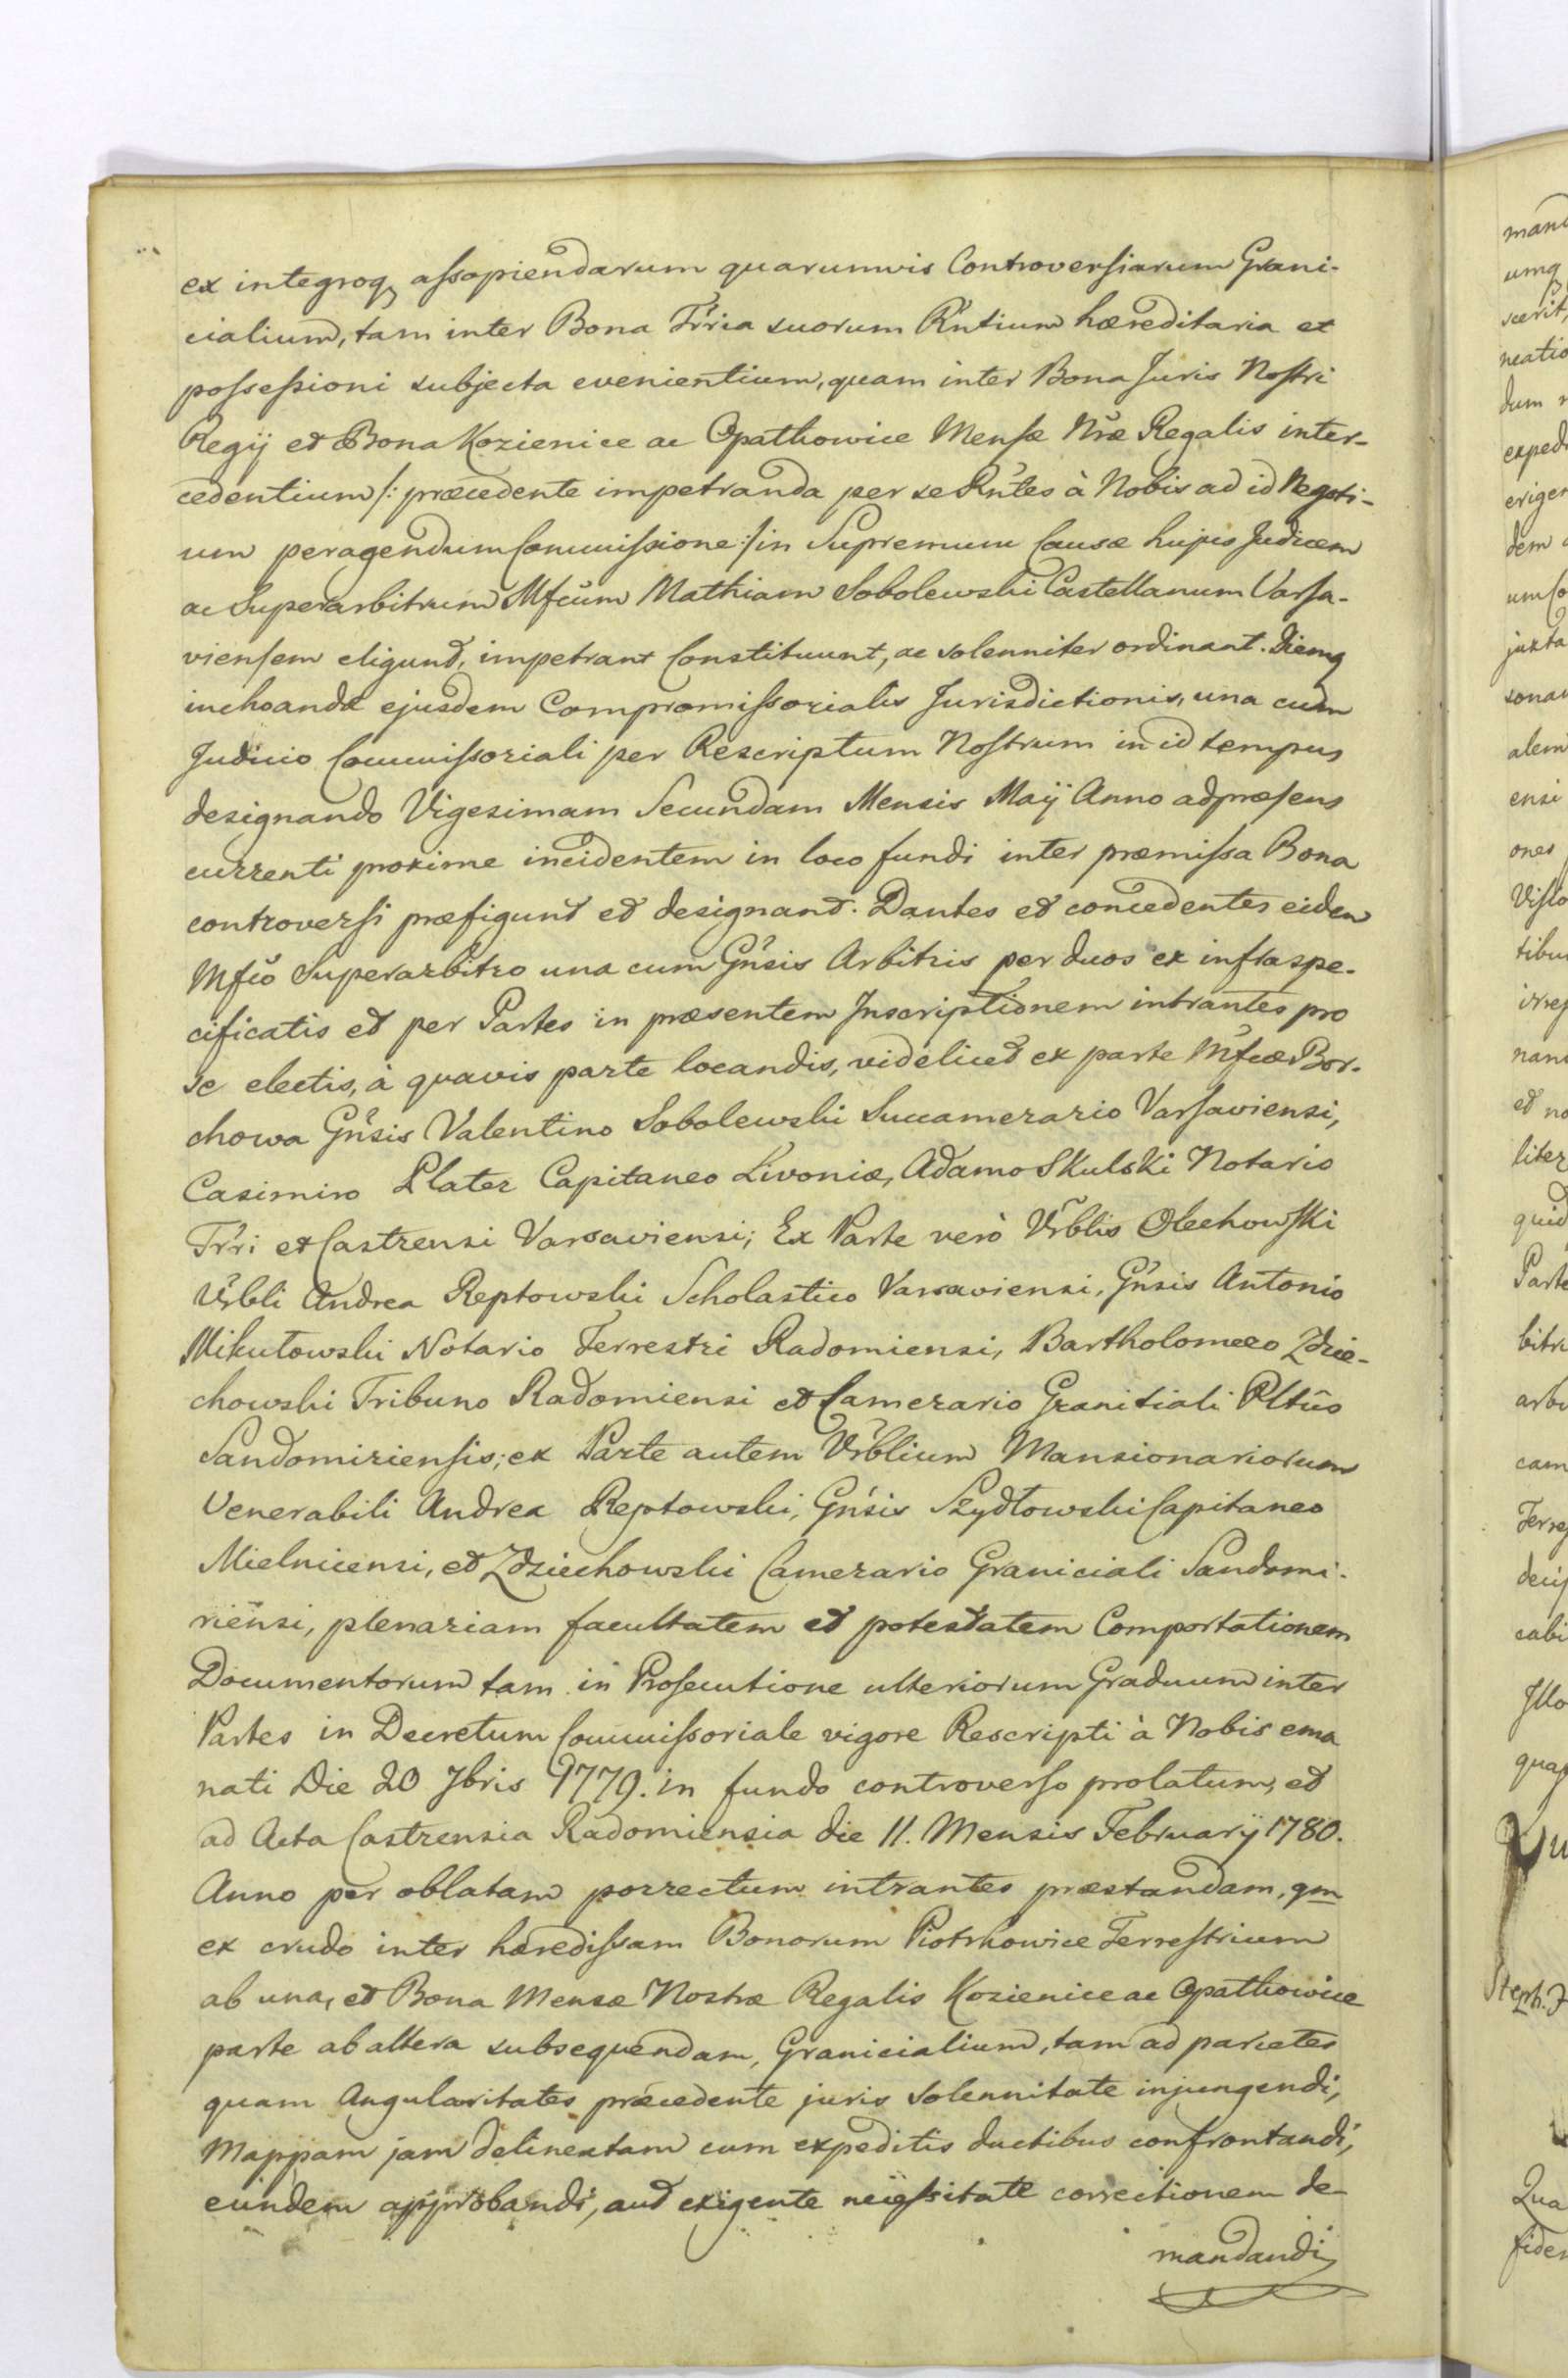 ex integroq, assopiendarum quarumvis Controversiarum Grani-
cialium, tam inter Bona Trria suorum Rntium hæreditaria et
possessioni subjecta evenientium, quam inter Bona Juris Nostri
Regij et Bona Kozienice ac Opathowice Mensæ Nræ Regalis inter-
cedentium /: præcedente impetranda per se Rntes à Nobis ad id Negoti-
um peragendum Commissione :/ in Supremum Causæ hujus Judicem
ac Superarbitrum Mfcum Mathiam Sobolewski Castellanum Varsa-
viensem eligunt, impetrant Constituunt, ac solenniter ordinant. Diemq
inchoandæ ejusdem Compromissorialis Jurisdictionis, una cum
Judicio Commissoriali per Rescriptum Nostrum in id tempus
designando Vigesimam Secundam Mensis Maij Anno adpræsens
currenti proxime incidentem in loco fundi inter præmissa Bona
controversi præfigunt et designant. Dantes et concedentes eidem
Mfco Superarbitro una cum Gnsis Arbitris per duos ex infraspe-
cificatis et per Partes in præsentem Inscriptionem intrantes pro
se electis, à quavis parte locandis, videlicet ex parte Mfcæ Bor-
chowa Gnsis Valentino Sobolewski Succamerario Varsaviensi,
Casimiro Plater Capitaneo Livoniæ, Adamo Skulski Notario
Trri et Castrensi Varsaviensi; Ex Parte verò Vrblis Olechowski
Vrbli Andrea Reptowski Scholastico Varsaviensi, Gnsis Antonio
Mikułowski Notario Terrestri Radomiensi, Bartholomeo Zdzie-
chowski Tribuno Radomiensi et Camerario Granitiali Pltûs
Sandomiriensis; ex Parte autem Vrblium Mansionariorum
Venerabili Andrea Reptowski, Gnsis Szydłowski Capitaneo
Mielnicensi, et Zdziechowski Camerario Graniciali Sandomi-
riensi, plenariam facultatem et potestatem Comportationem
Documentorum tam in Prosecutione ulteriorum Graduum inter
Partes in Decretum Commissoriale vigore Rescripti à Nobis ema
nati Die 20 7bris 1779. in fundo controverso prolatum, et
ad Acta Castrensia Radomiensia die 11. Mensis Februarij 1780.
Anno per oblatam porrectum intrantes præstandam, qm
ex crudo inter hæredissam Bonorum Piotrkowice Terrestrium
ab una, et Bona Mensæ Nostræ Regalis Kozienice ac Opathowice
parte ab altera subsequendam, Granicialium, tam ad parietes
quam Angularitates præcedente juris solennitate injungendi,
Mappam jam delineatam cum expeditis ductibus confrontandi,
eundem approbandi, aut exigente necessitate correctionem de-
mandandi